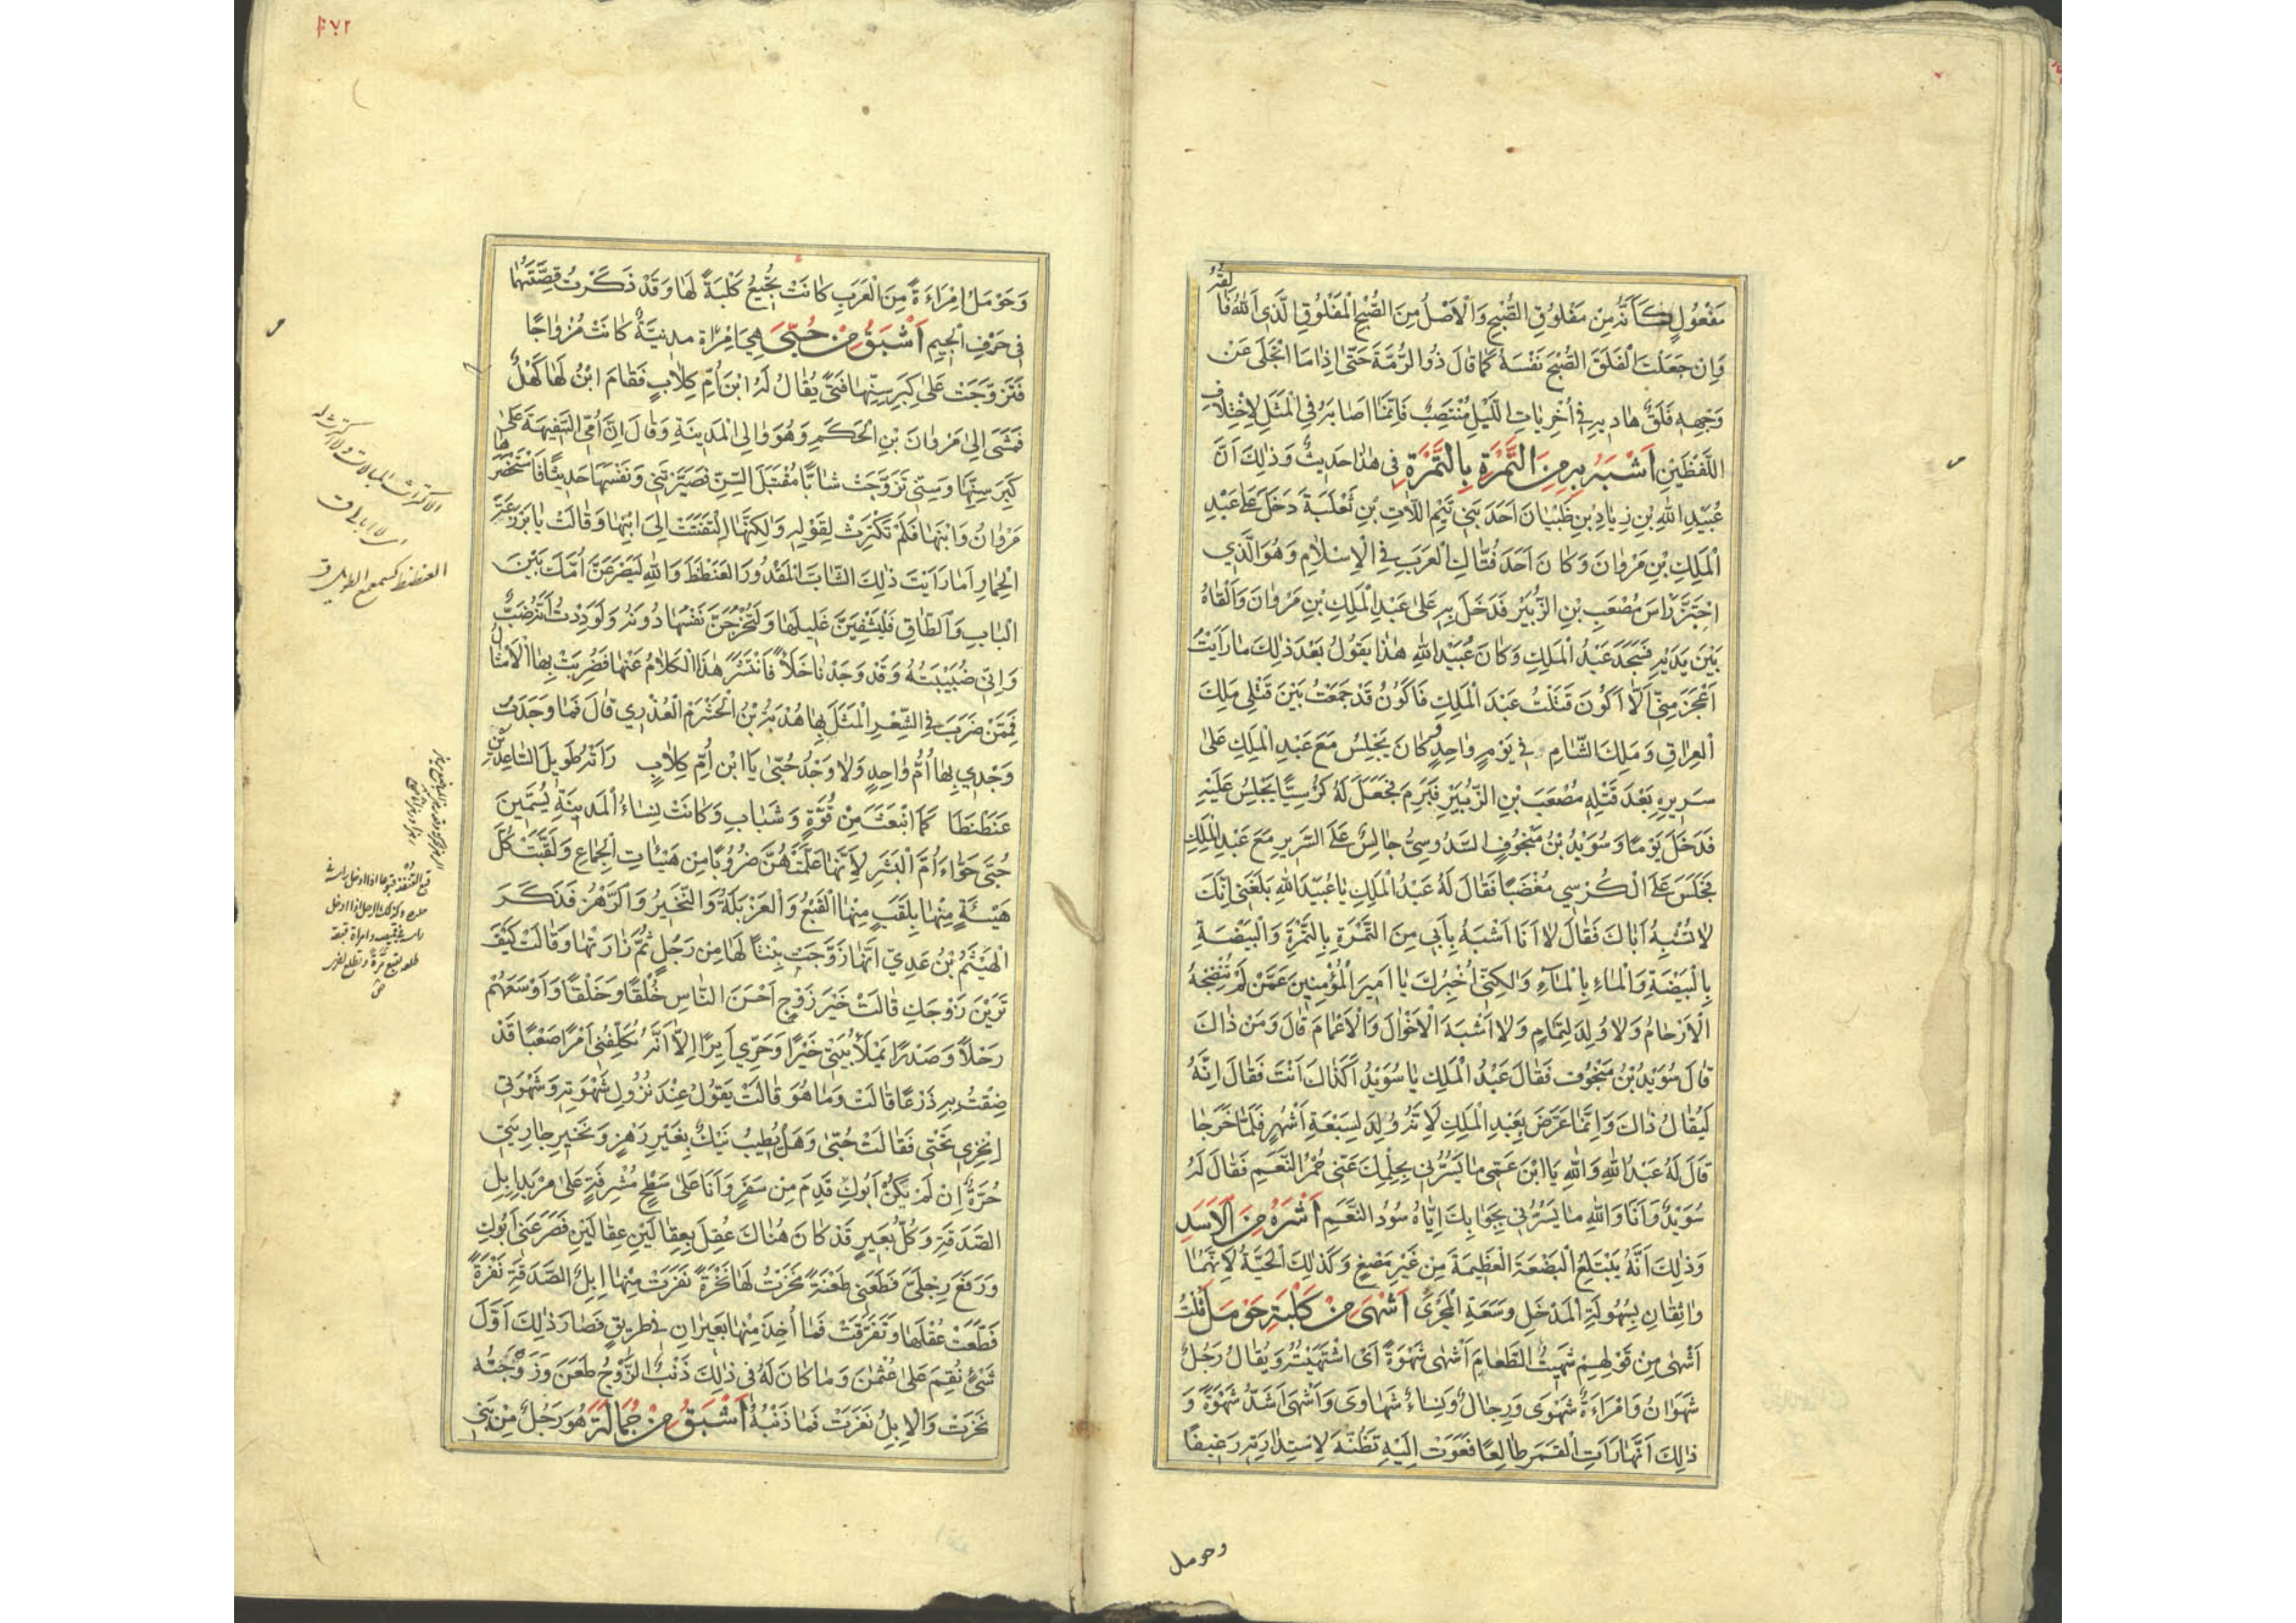 مَفْعُولٍ كَأَنَّهُ مِنْ مَفْلُوقِ الصُّبْحِ وَالْاَصْلُ مِنَ الصُّبْحِ الْمَفْلُوقِ الَّذِى اَللّٰهُ فَالِقُهُ
وَاِنْ جَعَلْتَ الْفَلَقَ الصُّبْحَ نَفْسَهُ كَمَا قَالَ ذُو الرُّمَّةِ حَتّٰى اِذَا مَا انْجَلٰى عَنْ
وَجْهِهِ فَلَقٌ هَادِيهِ فِى اُخْرِيَاتِ اللَّيْلِ مُنْتَصِبٌ فَاِنَّمَا اَضَافَهُ فِى الْمَثَلِ لِاخْتِلَافِ
اللَّفْظَيْنِ اَشْبَهُ بِهِ مِنَ التَّمْرَةِ بِالتَّمْرَةِ فِى هٰذَا حَدِيثٌ وَذٰلِكَ اَنَّ
عُبَيْدَ اللّٰهِ بْنَ زِيَادِ بْنِ ظَبْيَانَ اَحَدَ بَنِى تَيْمِ اللَّاتِ بْنِ ثَعْلَبَةَ دَخَلَ عَلٰى عَبْدِ
الْمَلِكِ بْنِ مَرْوَانَ وَكَانَ اَحَدَ فُتَّاكِ الْعَرَبِ فِى الْاِسْلَامِ وَهُوَ الَّذِى
احْتَزَّ رَأْسَ مُصْعَبِ بْنِ الزُّبَيْرِ فَدَخَلَ بِهِ عَلٰى عَبْدِ الْمَلِكِ بْنِ مَرْوَانَ وَاَلْقَاهُ
بَيْنَ يَدَيْهِ فَسَجَدَ عَبْدُ الْمَلِكِ وَكَانَ عُبَيْدُ اللّٰهِ هٰذَا يَقُولُ بَعْدَ ذٰلِكَ مَا رَاَيْتُ
اَعْجَزَ مِنِّى اَلَّا اَكُونَ قَتَلْتُ عَبْدَ الْمَلِكِ فَاَكُونُ قَدْ جَمَعْتُ بَيْنَ قَتْلِى مَلِكَ
الْعِرَاقِ وَمَلِكَ الشَّامِ فِى يَوْمٍ وَاحِدٍ وَكَانَ يَجْلِسُ مَعَ عَبْدِ الْمَلِكِ عَلٰى
سَرِيرِهِ بَعْدَ قَتْلِهِ مُصْعَبَ بْنَ الزُّبَيْرِ فَبَرِمَ بِهِ فَجَعَلَ لَهُ كُرْسِيًّا يَجْلِسُ عَلَيْهِ
فَدَخَلَ يَوْمًا وَسُوَيْدُ بْنُ مَنْجُوفٍ السَّدُوسِىُّ جَالِسٌ عَلَى السَّرِيرِ مَعَ عَبْدِ الْمَلِكِ
فَجَلَسَ عَلَى الْكُرْسِي مُغْضَبًا فَقَالَ لَهُ عَبْدُ الْمَلِكِ يَا عُبَيْدَ اللّٰهِ بَلَغَنِى اِنَّكَ
لَا تُشْبِهُ اَبَاكَ فَقَالَ لَا اَنَا اَشْبَهُ بِاَبِى مِنَ التَّمْرَةِ بِالتَّمْرَةِ وَالْبَيْضَةِ
بِالْبَيْضَةِ وَالْمَاءِ بِالْمَاءِ وَلٰكِنِّى اُخْبِرُكَ يَا اَمِيرَ الْمُؤْمِنِينَ عَمَّنْ لَمْ تُنْضِجْهُ
الْاَرْحَامُ وَلَا وُلِدَ لِتَمَامٍ وَلَا اَشْبَهَ الْاَخْوَالَ وَالْاَعْمَامَ قَالَ وَمَنْ ذَاكَ
قَالَ سُوَيْدُ بْنُ مَنْجُوفٍ فَقَالَ عَبْدُ الْمَلِكِ يَا سُوَيْدُ اَكَذَاكَ اَنْتَ فَقَالَ اِنَّهُ
لَيُقَالُ ذَاكَ وَاِنَّمَا عَرَّضَ بِعَبْدِ الْمَلِكِ لِاَنَّهُ وُلِدَ لِسَبْعَةِ اَشْهُرٍ فَلَمَّا خَرَجَا
قَالَ لَهُ عَبْدُ اللّٰهِ وَاللّٰهِ يَا ابْنَ عَمِّى مَا يَسُرُّنِى بِحِلْمِكَ عَنِّى حُمْرُ النَّعَمِ فَقَالَ لَهُ
سُوَيْدٌ وَاَنَا وَاللّٰهِ مَا يَسُرُّنِى بِجَوَابِكَ اِيَّاهُ سُودُ النَّعَمِ اَشْرَهُ مِنَ الْاَسَدِ
وَذٰلِكَ اَنَّهُ يَبْتَلِعُ الْبَضْعَةَ الْعَظِيمَةَ مِنْ غَيْرِ مَضْغٍ وَكَذٰلِكَ الْحَيَّةُ لِاَنَّهُمَا
وَاثِقَانِ بِسُهُولَةِ الْمَدْخَلِ وَسَعَةِ الْمَجْرٰى اَشْهٰى مِنْ كَلْبَةِ حَوْمَلَ قُلْتُ
اَشْهٰى مِنْ قَوْلِهِمْ شَهِيتُ الطَّعَامَ اَشْهٰى شَهْوَةً اَىْ اشْتَهَيْتُهُ وَيُقَالُ رَجُلٌ
شَهْوَانُ وَامْرَاَةٌ شَهْوٰى وَرِجَالٌ وَنِسَاءٌ شَهَاوٰى وَاَشْهٰى اَشَدُّ شَهْوَةً وَ
ذٰلِكَ اَنَّهَا رَاَتِ الْقَمَرَ طَالِعًا فَعَوَتْ اِلَيْهِ تَظُنُّهُ لِاسْتِدَارَتِهِ رَغِيفًا
وحومل
وَحَوْمَلُ امْرَاَةٌ مِنَ الْعَرَبِ كَانَتْ تُجِيعُ كَلْبَةً لَهَا وَقَدْ ذَكَرْتُ قِصَّتَهُمَا
فِى حَرْفِ الْجِيمِ اَشْبَقُ مِنْ حُبّٰى هِىَ امْرَاَةٌ مَدَنِيَّةٌ كَانَتْ مِزْوَاجًا
فَتَزَوَّجَتْ عَلٰى كِبَرِ سِنِّهَا فَتًى يُقَالُ لَهُ ابْنُ اُمِّ كِلَابٍ فَقَامَ ابْنٌ لَهَا كَهْلٌ
فَمَشٰى اِلٰى مَرْوَانَ بْنِ الْحَكَمِ وَهُوَ وَالِى الْمَدِينَةِ وَقَالَ اِنَّ اُمِّى السَّفِيهَةَ عَلٰى
كِبَرِ سِنِّهَا وَسِنِّى تَزَوَّجَتْ شَابًّا مُقْتَبَلَ السِّنِّ فَصَيَّرَتْنِى وَنَفْسَهَا حَدِيثًا فَاسْتَحْضَرَهَا
مَرْوَانُ وَابْنَهَا فَلَمْ تَكْتَرِثْ لِقَوْلِهِ وَلٰكِنَّهَا الْتَفَتَتْ اِلٰى ابْنِهَا وَقَالَتْ يَا بَرْذَعَةَ
الْحِمَارِ اَمَا رَاَيْتَ ذٰلِكَ الشَّابَّ الْمَقْدُودَ الْعَنَطْنَطَ وَاللّٰهِ لَيَصْرَعَنَّ اُمَّكَ بَيْنَ
الْبَابِ وَالطَّاقِ فَلَيَشْفِيَنَّ غَلِيلَهَا وَلَتَخْرُجَنَّ نَفْسُهَا دُونَهُ وَلَوَدِدْتُ اَنَّهُ ضَبٌّ
وَاِنِّى ضُبَيْبَتُهُ وَقَدْ وَجَدْنَا خَلَاءً فَانْتَشَرَ هٰذَا الْكَلَامُ عَنْهَا فَضُرِبَتْ بِهَا الْاَمْثَالُ
فَمِمَّنْ ضَرَبَ فِى الشِّعْرِ الْمَثَلَ بِهَا هُدْبَةُ بْنُ الْخَشْرَمِ الْعُذْرِي قَالَ فَمَا وَجَدَتْ
وَجْدِي بِهَا اُمُّ وَاحِدٍ وَلَا وَجْدُ حُبّٰى يَا ابْنِ اُمِّ كِلَابٍ رَاَتْهُ طَوِيلَ السَّاعِدَيْنِ
عَنَطْنَطًا كَمَا انْبَعَثَ مِنْ قُوَّةٍ وَشَبَابٍ وَكَانَتْ نِسَاءُ الْمَدِينَةِ يُسَمِّينَ
حُبّٰى حَوَّاءَ اُمَّ الْبَشَرِ لِاَنَّهَا عَلَّمَتْهُنَّ ضُرُوبًا مِنْ هَيْئَاتِ الْجِمَاعِ وَلَقَّبَتْ كُلَّ
هَيْئَةٍ مِنْهَا بِلَقَبٍ مِنْهَا الْقَبْعُ وَالْغَرْبَلَةُ وَالنَّخِيرُ وَالرَّهْزُ فَذَكَرَ
الْهَيْثَمُ بْنُ عَدِيّ اَنَّهَا زَوَّجَتْ بِنْتًا لَهَا مِنْ رَجُلٍ ثُمَّ زَارَتْهَا وَقَالَتْ كَيْفَ
تَرَيْنَ زَوْجَكِ قَالَتْ خَيْرَ زَوْجٍ اَحْسَنَ النَّاسِ خُلُقًا وَخَلْقًا وَاَوْسَعَهُمْ
رَحْلًا وَصَدْرًا يَمْلَأُ بَيْتِى خَيْرًا وَحَرِّي اَيْرًا اِلَّا اَنَّهُ يُكَلِّفُنِى اَمْرًا صَعْبًا قَدْ
ضِقْتُ بِهِ ذَرْعًا قَالَتْ وَمَا هُوَ قَالَتْ يَقُولُ عِنْدَ نُزُولِ شَهْوَتِهِ وَشَهْوَتِى
اِنْخِرِى تَحْتِى فَقَالَتْ حُبّٰى وَهَلْ يَطِيبُ نَيْكٌ بِغَيْرِ رَهْزٍ وَنَخِيرٍ جَارِيَتِى
حُرَّةٌ اِنْ لَمْ يَكُنْ اَبُوكِ قَدِمَ مِنْ سَفَرٍ وَاَنَا عَلٰى سَطْحٍ مُشْرِفَةٍ عَلٰى مِرْبَدِ اِبِلِ
الصَّدَقَةِ وَكُلُّ بَعِيرٍ قَدْ كَانَ هُنَاكَ عُقِلَ بِعِقَالَيْنِ عِقَالَيْنِ فَصَرَعَنِى اَبُوكِ
وَرَفَعَ رِجْلَىَّ فَطَعَنَنِى طَعْنَةً نَخَرْتُ لَهَا نَخْرَةً نَفَرَتْ مِنْهَا اِبِلُ الصَّدَقَةِ نَفْرَةً
قَطَّعَتْ عُقُلَهَا وَتَفَرَّقَتْ فَمَا اُخِذَ مِنْهَا بَعِيرَانِ فِى طَرِيقٍ فَصَارَ ذٰلِكَ اَوَّلَ
شَىْءٍ نُقِمَ عَلٰى عُثْمٰنَ وَمَا كَانَ لَهُ فِى ذٰلِكَ ذَنْبٌ الزَّوْجُ طَعَنَ وَزَوْجَتُهُ
نَخَرَتْ وَالْاِبِلُ نَفَرَتْ فَمَا ذَنْبُهُ اَشْبَقُ مِنْ جُمَالَةَ هُوَ رَجُلٌ مِنْ بَنِى
العنطنط كسمعمع الطويل ق